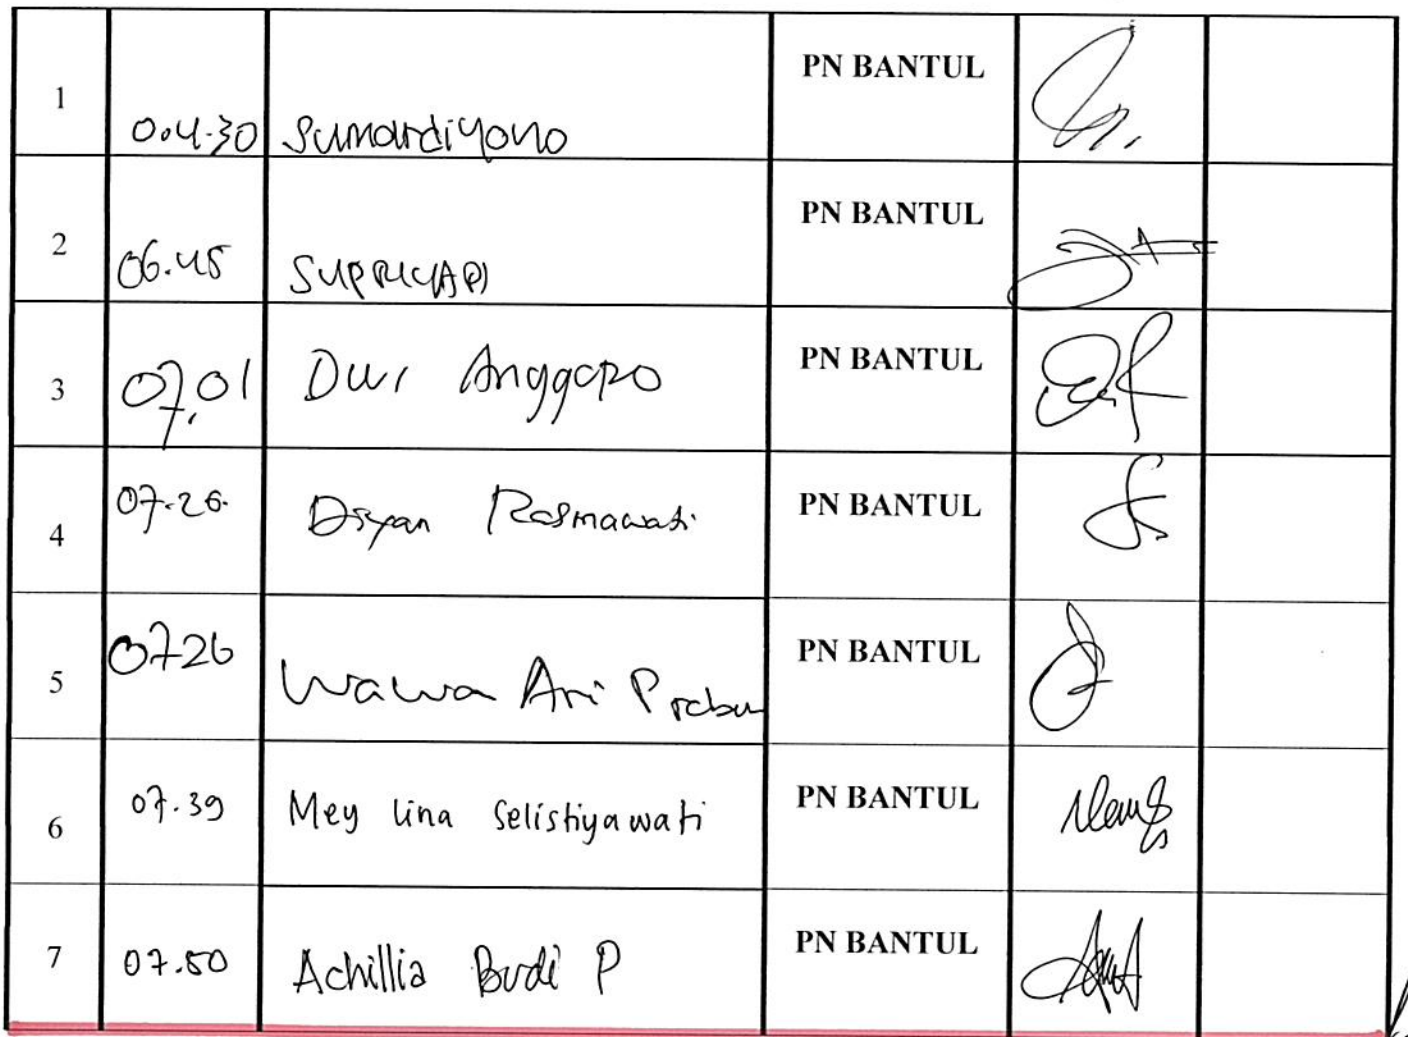 1 0.4.30 Sumardiyono PN BANTUL
2 06.45 SUPRIYADI PN BANTUL
3 07.01 Dwi Anggoro PN BANTUL
4 07.26. Diyan Rosmawati PN BANTUL
5 0726 Wawa Ari Prabu PN BANTUL
6 07.39 Mey lina selistiyawati PN BANTUL
7 07.50 Achillia Budi P PN BANTUL